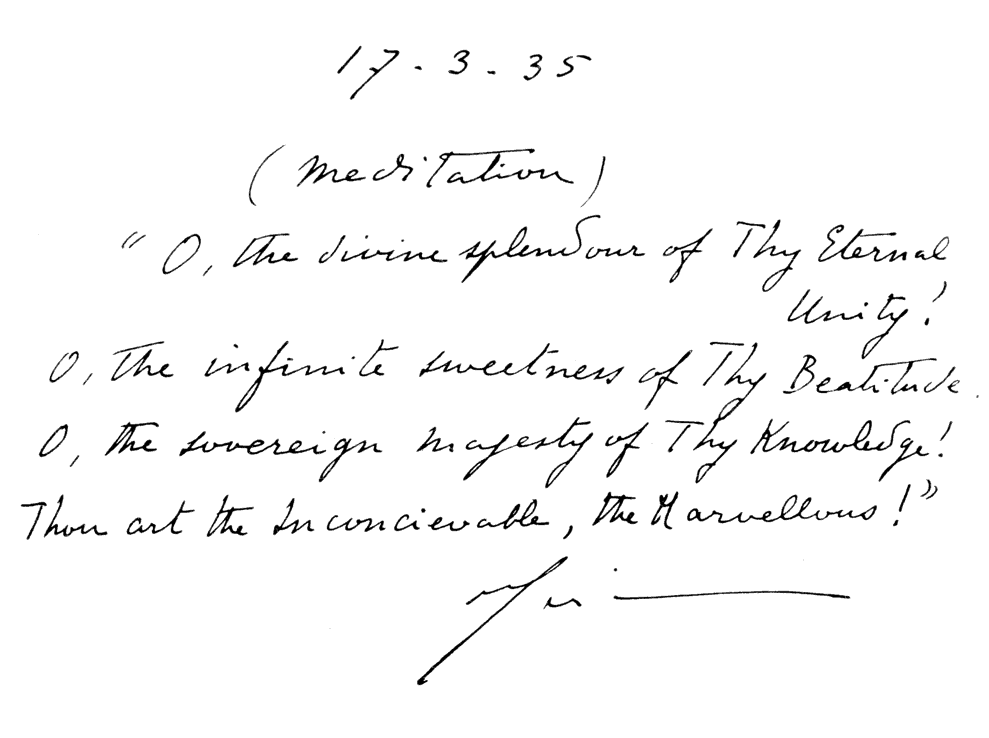 17.3.35
(Meditation)
"O, the divine splendour of Thy Eternal
Unity!
O, the infinite sweetness of Thy Beatitude.
O, the sovereign majesty of Thy Knowledge!
Thou art the Inconcievable, the Marvellous!"